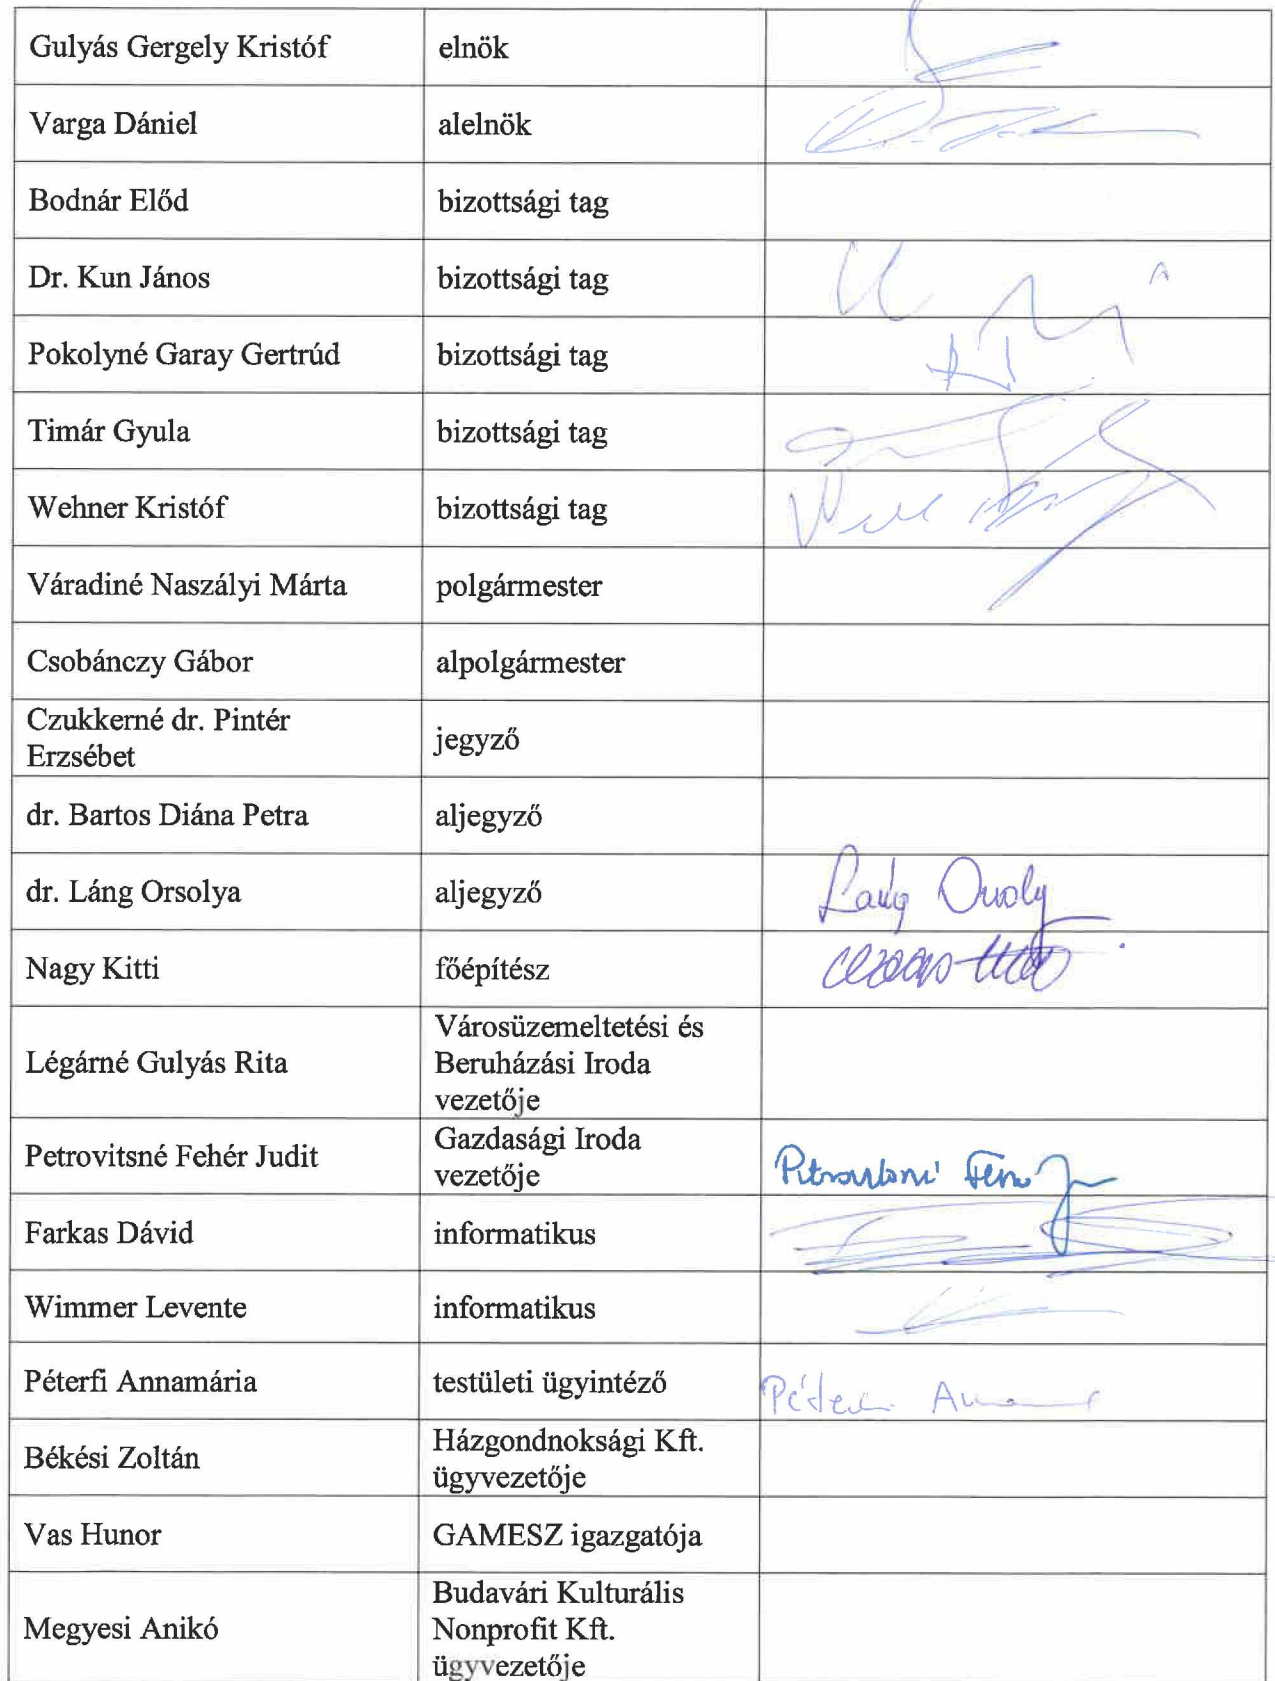 Gulyás Gergely Kristóf elnök
Varga Dániel alelnök
Bodnár Előd bizottsági tag
Dr. Kun János bizottsági tag
Pokolyné Garay Gertrúd bizottsági tag
Timár Gyula bizottsági tag
Wehner Kristóf bizottsági tag
Váradiné Naszályi Márta polgármester
Csobánczy Gábor alpolgármester
Czukkerné dr. Pintér
Erzsébet
jegyző
dr. Bartos Diána Petra aljegyző
dr. Láng Orsolya aljegyző Láng Orsolya
Nagy Kitti főépítész
Légárné Gulyás Rita
Városüzemeltetési és
Beruházási Iroda
vezetője
Petrovitsné Fehér Judit
Gazdasági Iroda
vezetője
Farkas Dávid informatikus
Wimmer Levente informatikus
Péterfi Annamária testületi ügyintéző
Békési Zoltán
Házgondnoksági Kft.
ügyvezetője
Vas Hunor GAMESZ igazgatója
Megyesi Anikó
Budavári Kulturális
Nonprofit Kft.
ügyvezetője